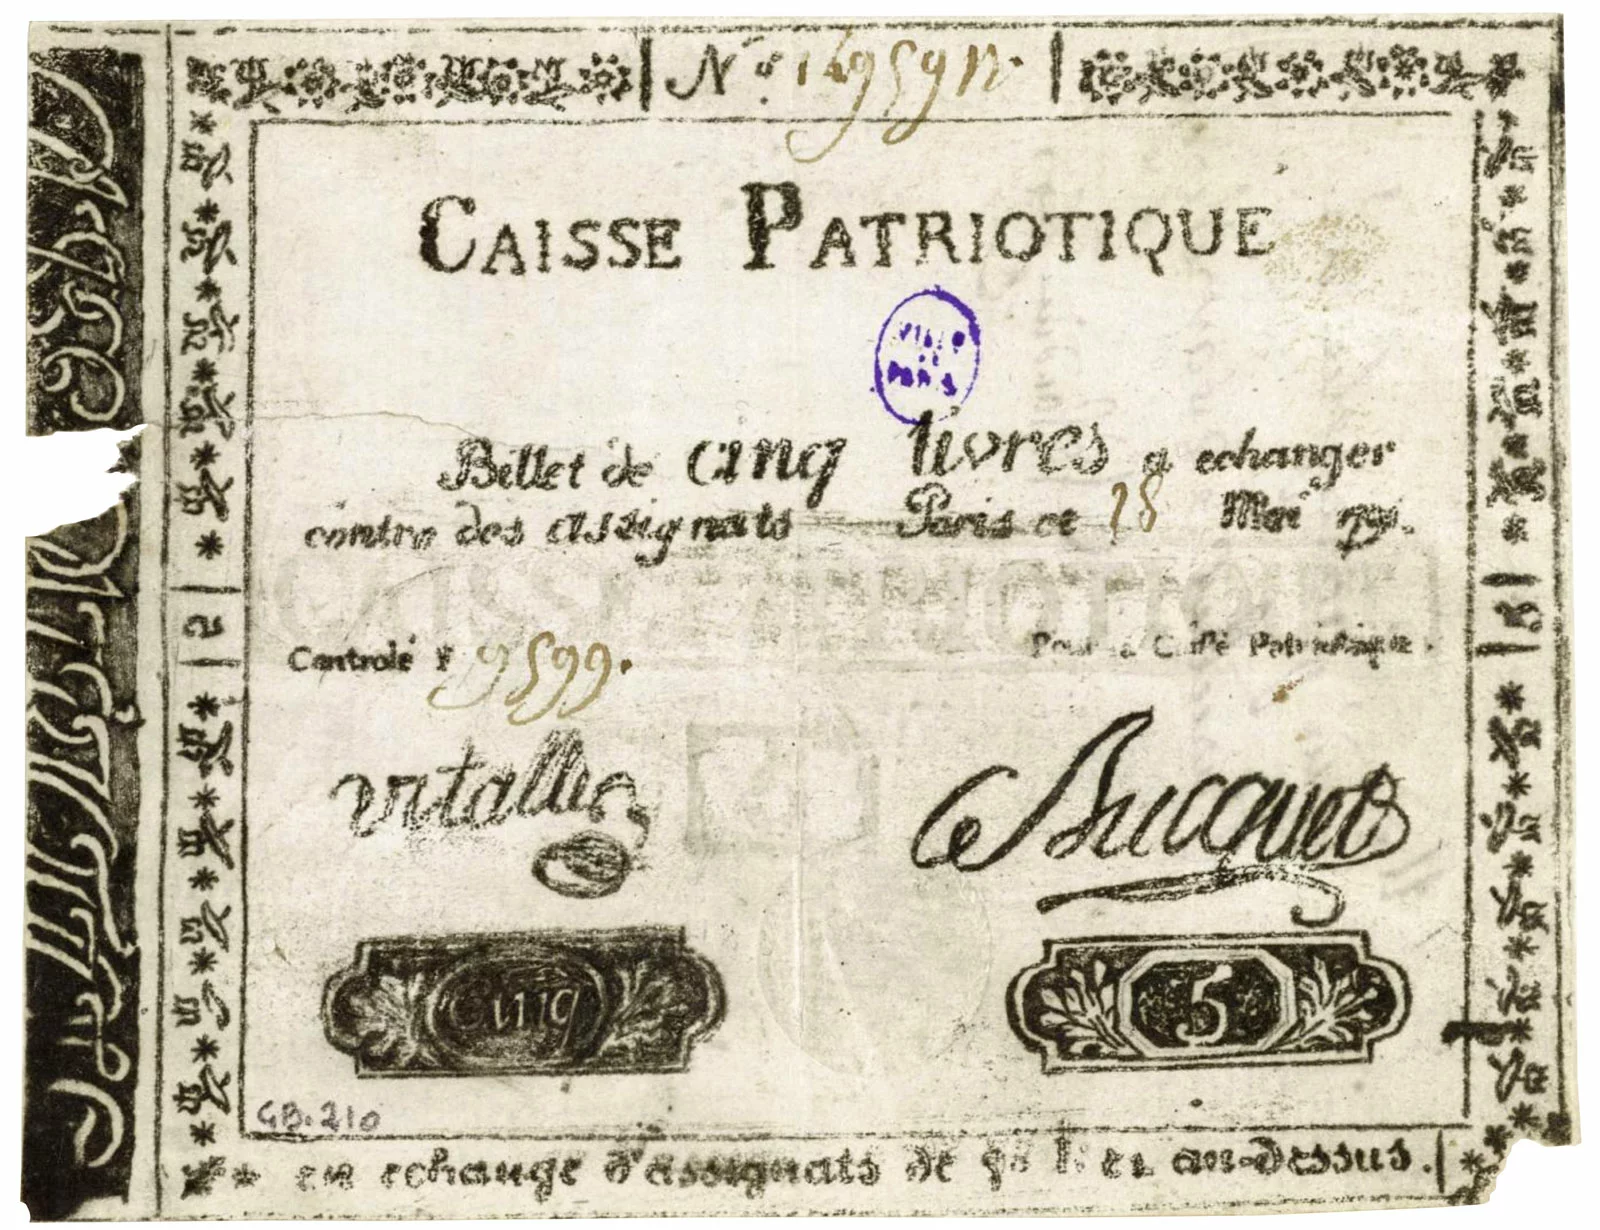 Nº. 149591².
CAISSE PATRIOTIQUE
VILLE
DE
PARIS
Billet de cinq livres a echanger
contre des assignats Paris ce 18 Mai 791.
5
5
Controlé F 9599.
Pour la Caisse Patriotique.
vitallis
Le Bucquet
Cinq
5
GB.210
en echange d'assignats de 50 l. et au-dessus.